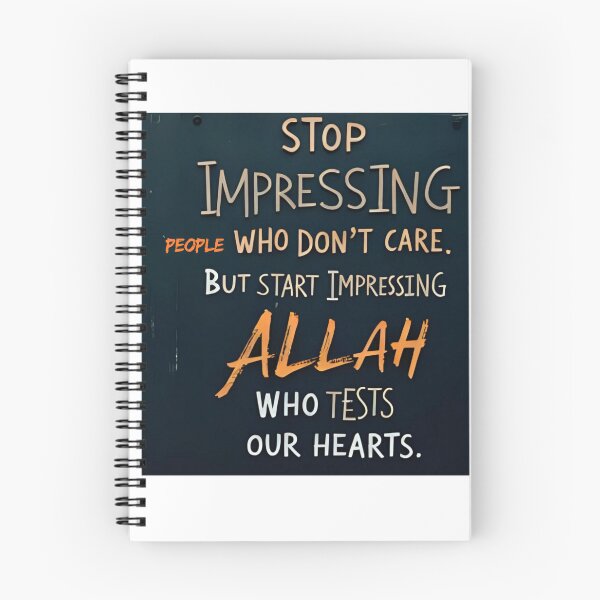 STOP
IMPRESSING
PEOPLE WHO DON'T CARE.
BUT START IMPRESSING
ALLAH
WHO TESTS
OUR HEARTS.